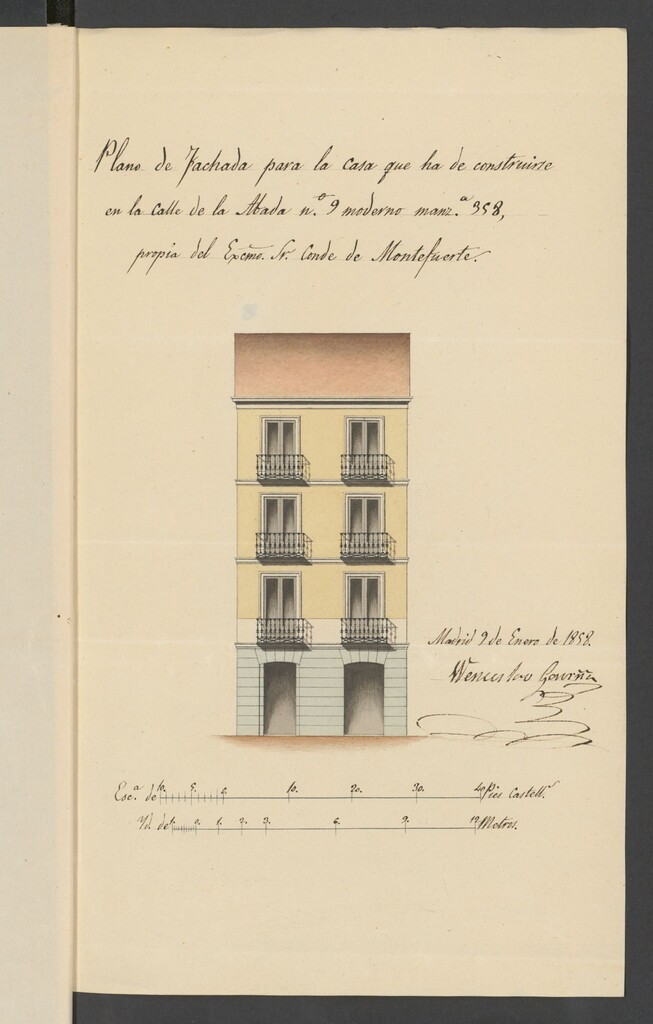 Plano de Fachada para la casa que ha de construirse
en la calle de la Abada n.º 9 moderno manz.ª 358,
propia del Excmo. Sr. Conde de Montefuerte.
Madrid 9 de Enero de 1858.
Wenceslao Gaviña
Esc.ª de 10. 5. 0. 10. 20. 30. 40 Pies Castell.s
Yd. de 1. 0. 1. 2. 3. 6. 9. 12 Metros.